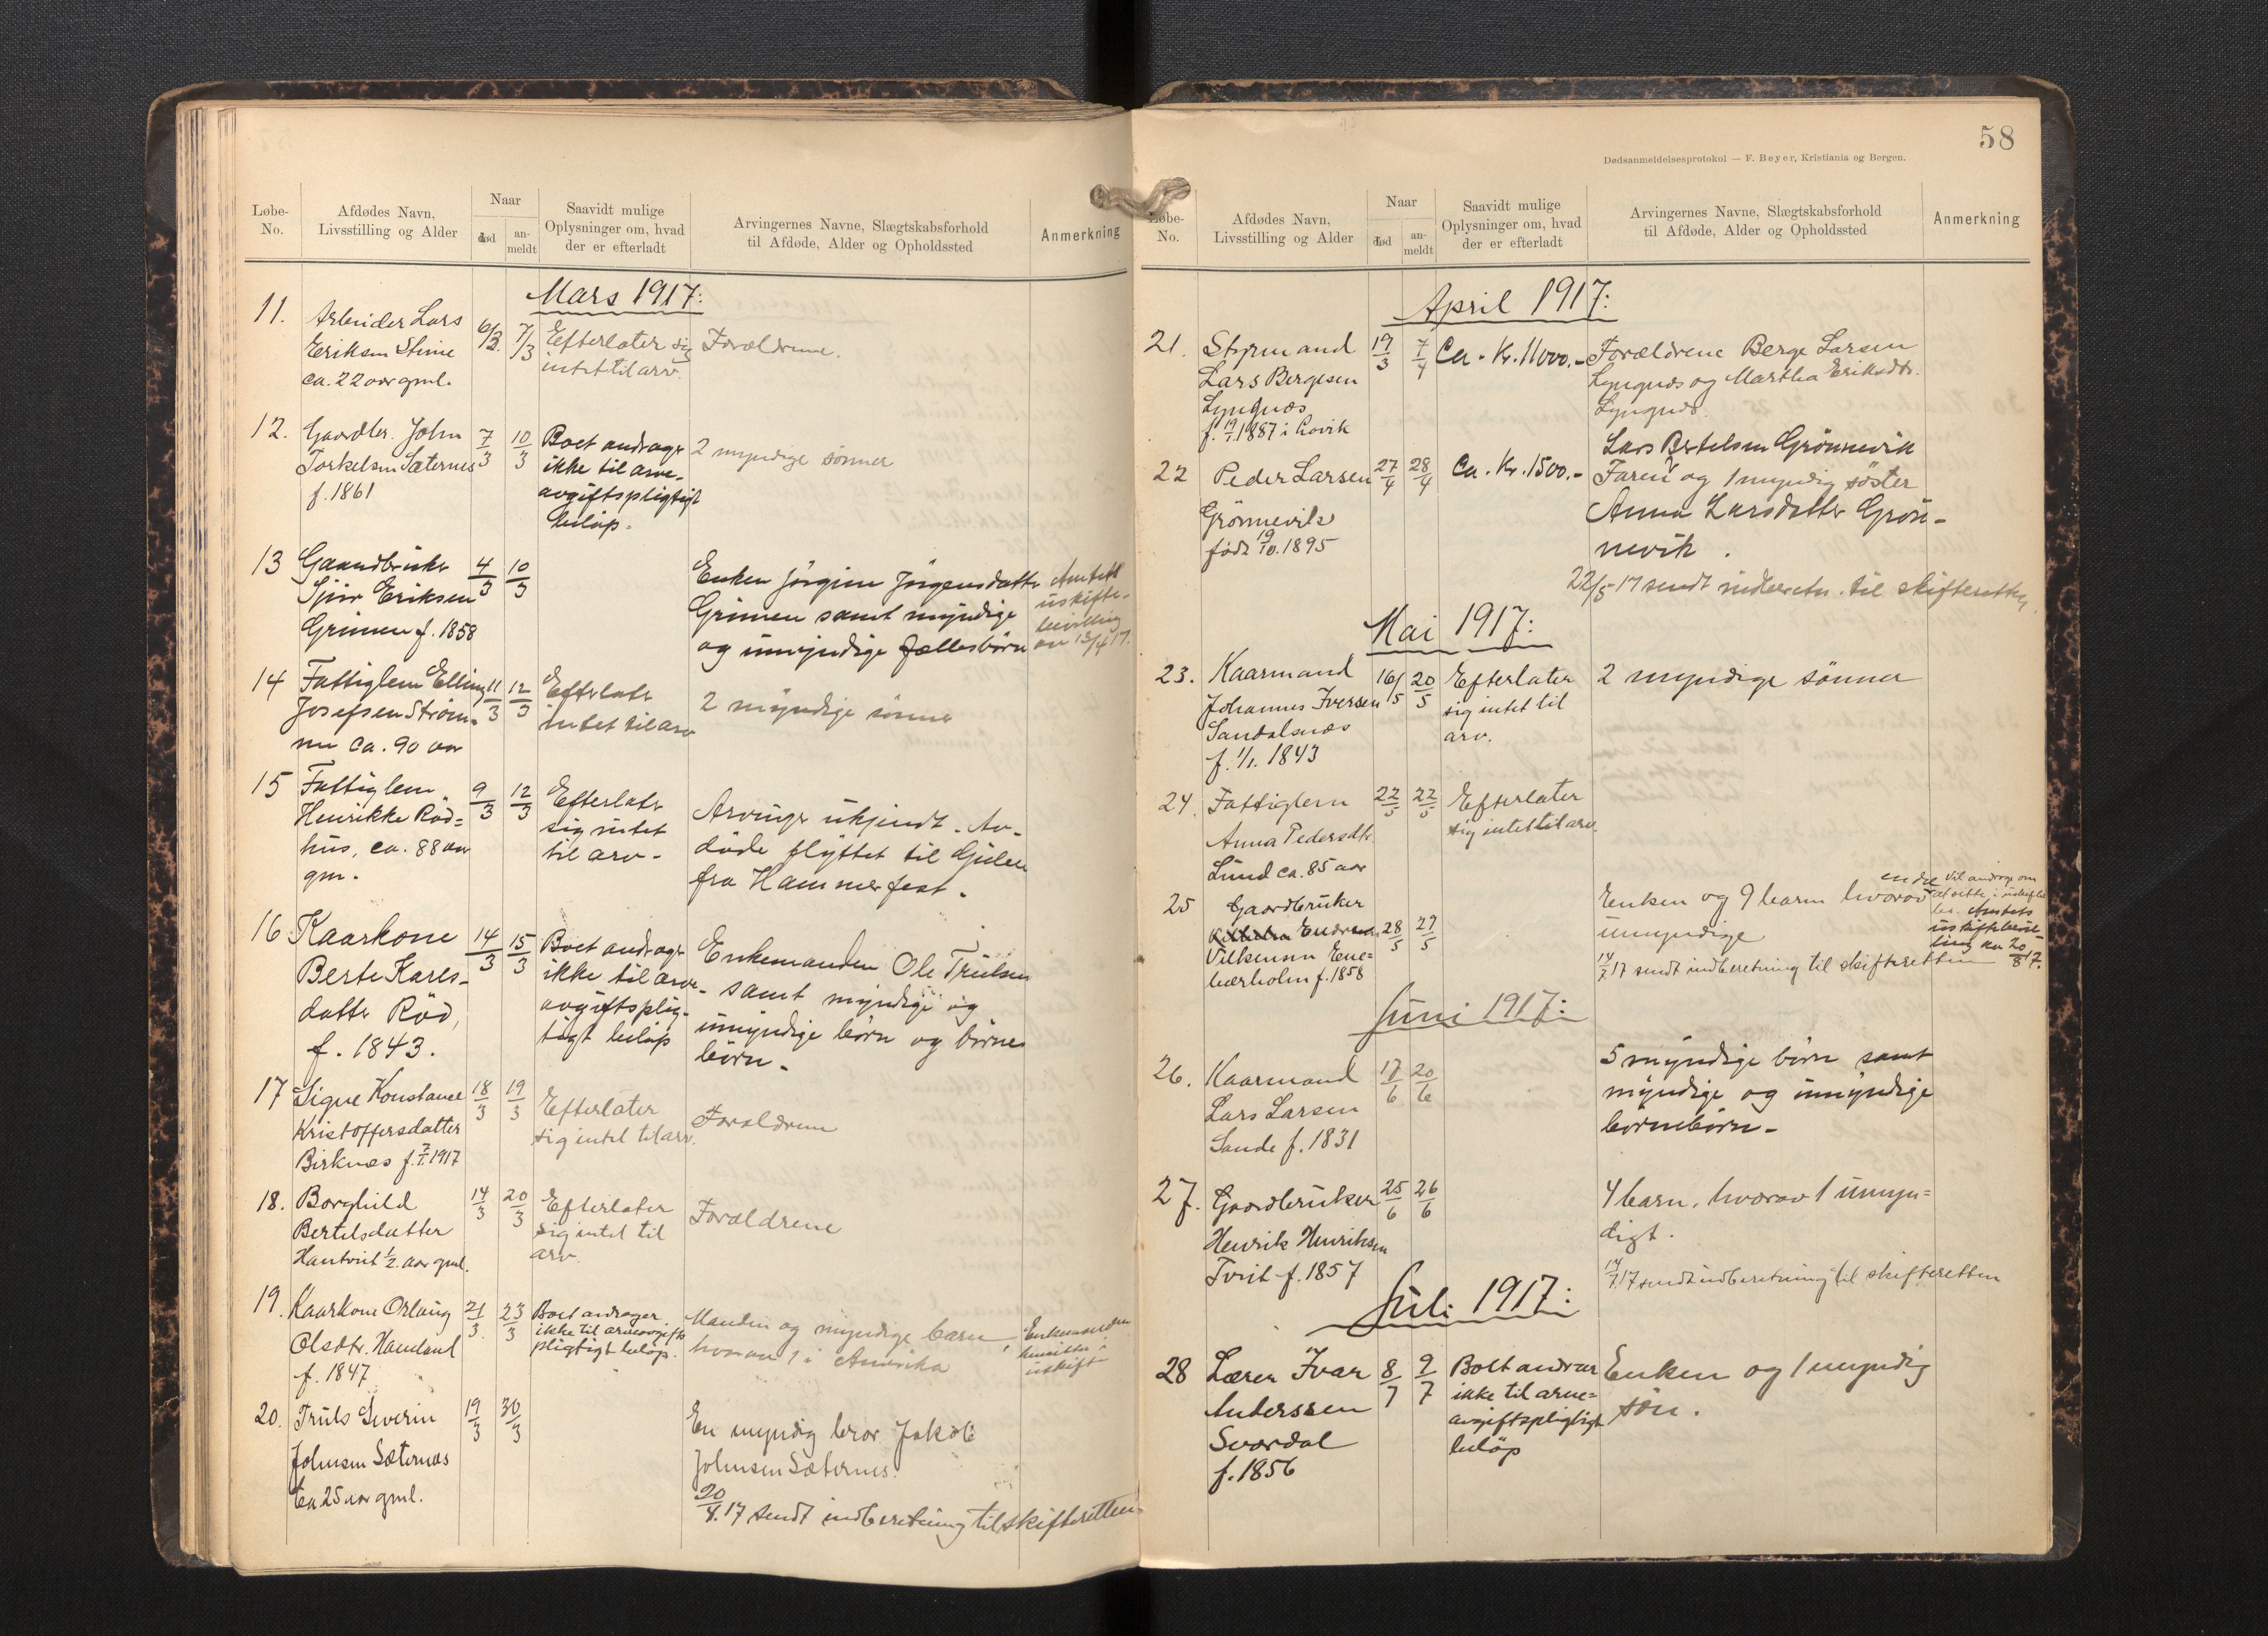 Løbe-
No.
Afdødes Navn,
Livsstilling og Alder
Naar
død
an-
meldt
Saavidt mulige
Oplysninger om, hvad
der er efterladt
Arvingernes Navne, Slægtskabsforhold
til Afdøde, Alder og Opholdssted
Anmerkning
Mars 1917:
11.
Arbeider Lars
Eriksen Steine
ca. 22 aar gml.
6/3.
7/3
Efterlater sig
intet til arv.
Forældrene.
12.
Gaardbr. John
Torkelsen Sæternes
f. 1861
7/3
10/3
Boet andrager
ikke til arve-
avgiftspligtigt
beløp.
2 myndige sønner
13
Gaardbruker
Sjur Eriksen
Grinen f. 1858
4/3
10/3
Enken Jørgine Jørgensdatter
Grinen samt myndige
og umyndige fællesbørn
Amtets
uskifte-
bevilling
av 13/4 17.
14
Fattiglem Elling
Josefsen Strøm-
me ca. 90 aar
11/3
12/3
Efterlater
intet til arv
2 myndige sønner
15
Fattiglem
Henrikke Röd=
hus, ca. 88 aar
gm.
9/3
12/3
Efterlater
sig intet
til arv-
Arvinger ukjendt. Av-
døde flyttet til Gulen
fra Hammerfest.
16
Kaarkone
Berte Karls-
datter Röd,
f. 1843.
14/3
15/3
Boet andrager
ikke til arve-
avgiftsplig-
tigt beløp
Enkemanden Ole Trulsen
samt myndige og
umyndige børn og børne
børn-
17
Signe Konstance
Kristoffersdatter
Birknes f. 7/1.1917
18/3
19/3
Efterlater
sig intet til arv.
Forældrene
18.
Borghild
Bertelsdatter
Hantveit 1/2. aar gml.
14/3
20/3
Efterlater
sig intet til
arv.
Forældrene
19.
Kaarkone Orlaug
Olsdtr. Haveland
f. 1847
21/3.
23/3
Boet andrager
ikke til arveavgifts
pligtigt beløp.
Manden og myndige barn,
hvorav 1 i Amerika
Enkemanden
hensitter i
uskifte
20.
Truls Severin
Johnsen Sæternes
Ca 25 aar gml.
19/3
30/3
En myndig bror Jakob
Johnsen Sæternes.
20/4.17 sendt indberetning til skifteretten
58
Dødsanmeldelsesprotokol — F. Beyer, Kristiania og Bergen.
Løbe-
No.
Afdødes Navn,
Livsstilling og Alder
Naar
død
an-
meldt
Saavidt mulige
Oplysninger om, hvad
der er efterladt
Arvingernes Navne, Slægtskabsforhold
til Afdøde, Alder og Opholdssted
Anmerkning
April 1917:
21.
Styrmand
Lars Bergesen
Lyngnes
f. 19/1.1887 i Lavik
19/3
7/4
Ca. Kr. 11000.-
Forældrene Berge Larsen
Lyngnes og Martha Eriksdtr.
Lyngnes.
22
Peder Larsen
Grønnevik
født 19/10.1895
27/4
28/4
Ca. Kr. 1500.-
Lars Bertelsen Grønnevik
Faren og 1 myndig søster
Anna Larsdatter Grøn-
nevik.
22/5-17 sendt indberetn. til skifteretten
Mai 1917:
23.
Kaarmand
Johannes Iversen
Sandalsnes
f. 1/1. 1843
16/5
20/5
Efterlater
sig intet til
arv.
2 myndige sønner
24.
Fattiglem
Anna Pedersdtr.
Lund ca. 85 aar
22/5
22/5
Efterlater
sig intet til arv.
25
Gaardbruker
Endre
Vilhemsen Ene=
bærholm f. 1858
28/5
29/5
Enken og 9 barn hvorav endel
umyndige
14/7 17 sendt indberetning til skifteretten
Vil andrage om
at sitte i uskiftet
bo. Amtets
uskiftebevil-
ling av 20/8 17.
Juni 1917:
26.
Kaarmand
Lars Larsen
Sande f. 1831
17/6
20/6
5 myndige børn samt
myndige og umyndige
børnebørn-
27.
Gaardbruker
Henrik Henriksen
Tveit f. 1857
25/6
26/6
4 barn, hvorav 1 umyn=
digt.
14/7.17 sendt indberetning til skifteretten
Juli 1917:
28
Lærer Ivar
Anderssen
Sværdal
f. 1856
8/7
9/7
Boet andrar
ikke til arve=
avgiftspligtigt
beløp
Enken og 1 myndig
søn.